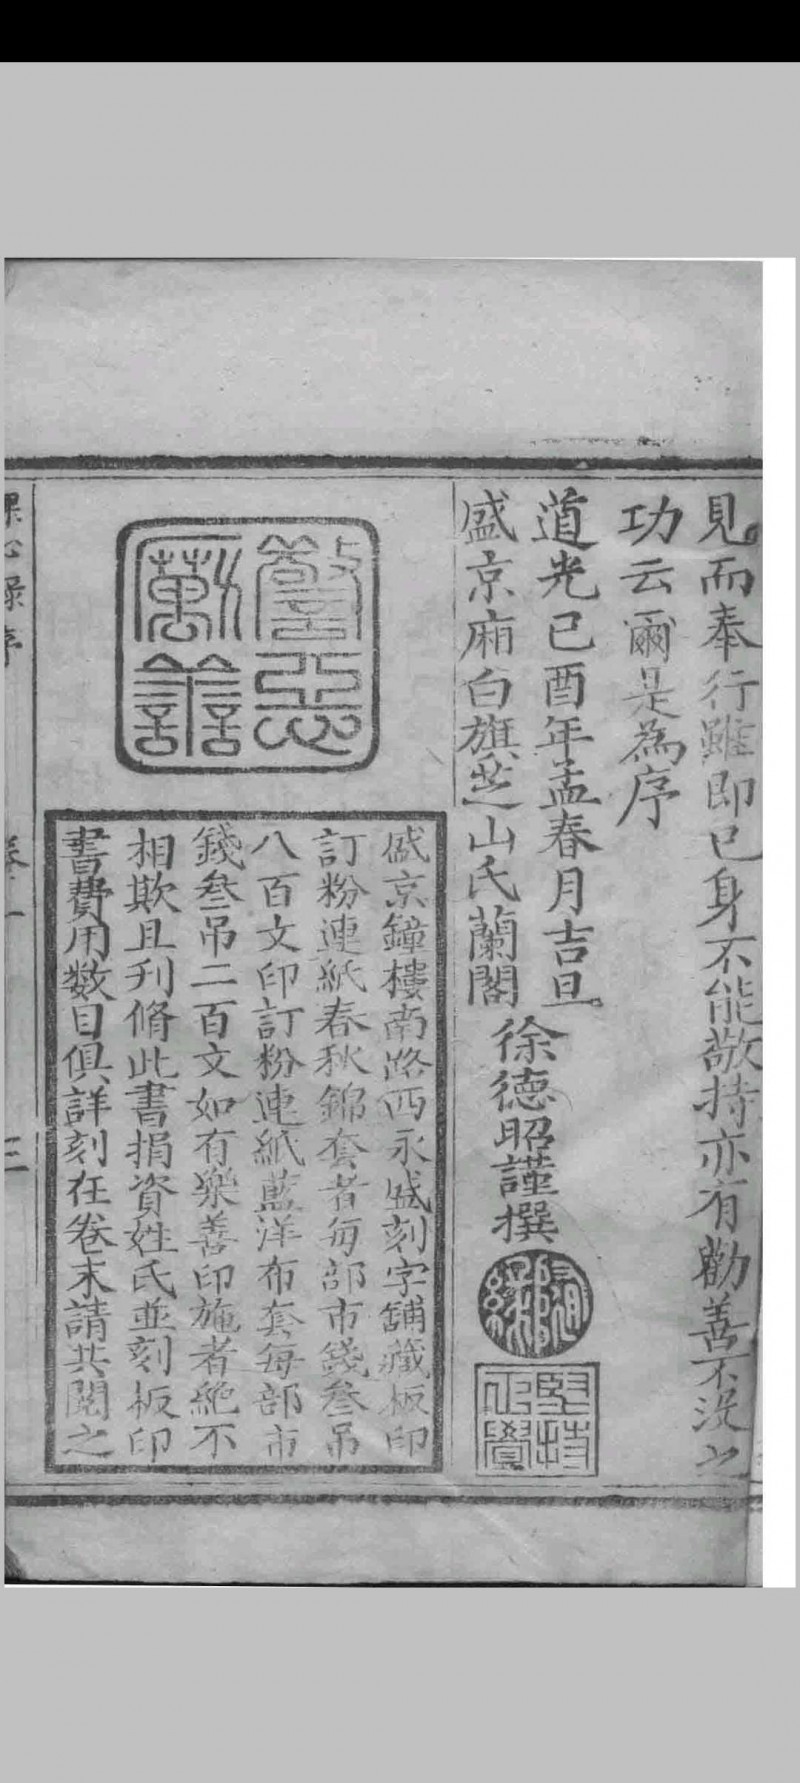 見而奉行雖即已身不能敬持亦有勸善不沒之
功云爾是為序
道光已酉年孟春月吉旦
盛京廂白旗芝山氏蘭閣
徐德昭謹撰
堅持
正覺
警惡
勸善
盛京鐘樓南路西永盛刻字舖藏板印
訂粉連紙春秋錦套者每部市錢叄吊
八百文印訂粉連紙藍洋布套每部市
錢叄吊二百文如有樂善印施者絕不
相欺且刋脩此書捐資姓氏並刻板印
書費用数目俱詳刻在卷末請共閱之
心錄序
卷一
三